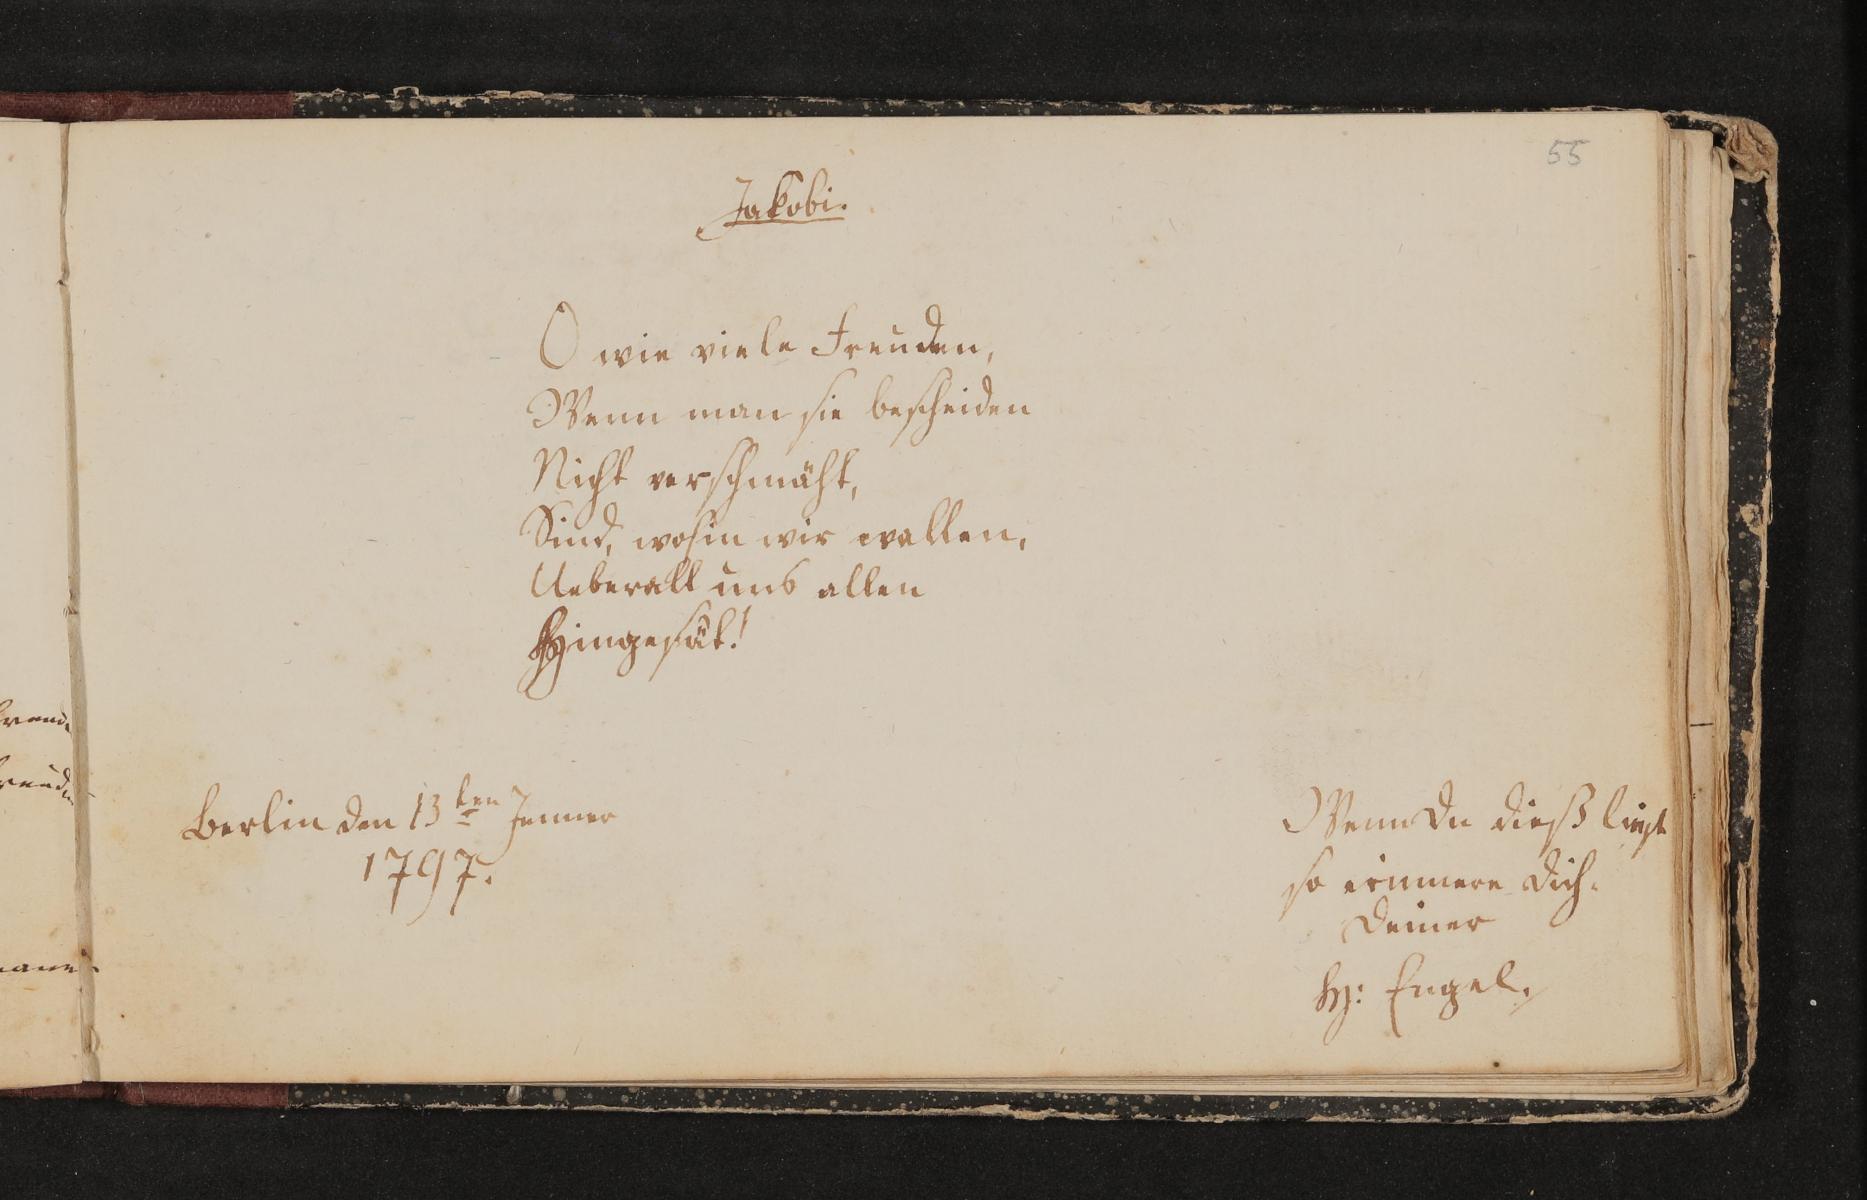 55
Jakobi.
O wie viele Freuden,
Wenn man sie bescheiden
Nicht verschmäht,
Sind, wohin wir wallen,
Ueberall uns allen
Hingesät!
Berlin den 13ten Jenner
1797.
Wenn Du dieß liest
so erinnere Dich
Deiner
H: Engel.